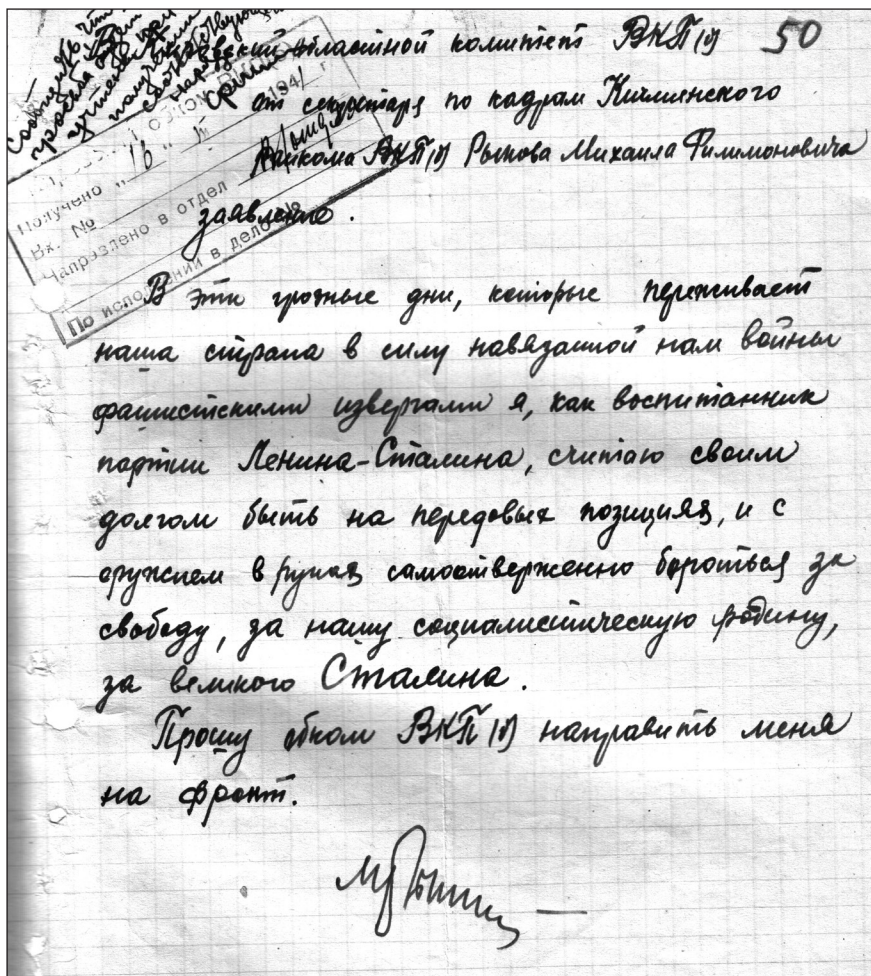 Сообщить что
просьба будет
учтена при
получении
соответствующего
наряда
областной комитет ВКП(б) 50
от секретаря по кадрам Кичминского
Райкома ВКП(б) Рыкова Михаила Филимоновича
заявление.
194 г
Получено „16“
Вх. №
Направлено в отдел
По исполнении в дело №
В эти грозные дни, которые переживает
наша страна в силу навязанной нам войны
фашистскими извергами я, как воспитанник
партии Ленина-Сталина, считаю своим
долгом быть на передовых позициях, и с
оружием в руках самоотверженно бороться за
свободу, за нашу социалистическую родину,
за великого Сталина.
Прошу обком ВКП(б) направить меня
на фронт.